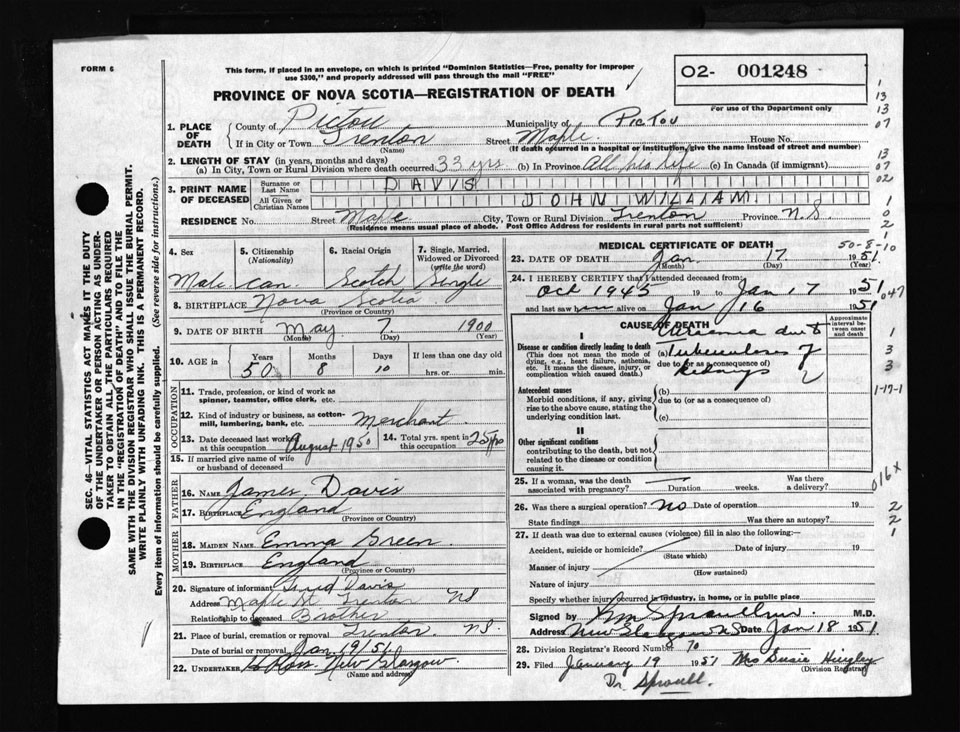 FORM 6
This form, if placed in an envelope, on which is printed "Dominion Statistics—Free, penalty for improper
use $300," and properly addressed will pass through the mail "FREE"
O2- 001248
For use of the Department only
PROVINCE OF NOVA SCOTIA—REGISTRATION OF DEATH
1. PLACE OF DEATH
County of Pictou Municipality of Pictou
If in City or Town Trenton Street Maple House No.
(Name) (If death occurred in a hospital or institution, give the name instead of street and number)
2. LENGTH OF STAY (in years, months and days)
(a) In City, Town or Rural Division where death occurred 33 yrs. (b) In Province All his life (c) In Canada (if immigrant)
3. PRINT NAME OF DECEASED
Surname or Last Name DAVIS
All Given or Christian Names JOHN WILLIAM.
RESIDENCE No. Street Maple City, Town or Rural Division Trenton Province N.S
(Residence means usual place of abode. Post Office Address for residents in rural parts not sufficient)
4. Sex Male
5. Citizenship (Nationality) Can.
6. Racial Origin Scotch
7. Single, Married, Widowed or Divorced (write the word) Single
8. BIRTHPLACE Nova Scotia
(Province or Country)
9. DATE OF BIRTH May 7. 1900
(Month) (Day)
10. AGE in Years 50 Months 8 Days 10 If less than one day old hrs. or min.
OCCUPATION
11. Trade, profession, or kind of work as
spinner, teamster, office clerk, etc.
12. Kind of industry or business, as cotton-
mill, lumbering, bank, etc. Merchant
13. Date deceased last worked at this occupation August 1950 14. Total yrs. spent in this occupation 25 yrs
15. If married give name of wife
or husband of deceased
FATHER
16. NAME James Davis
17. BIRTHPLACE England
(Province or Country)
MOTHER
18. MAIDEN NAME Emma Green
19. BIRTHPLACE England
(Province or Country)
20. Signature of informant Fred Davis
Address Maple St. Trenton NS
Relationship to deceased Brother
21. Place of burial, cremation or removal Trenton NS.
Date of burial or removal Jan. 19/51
22. UNDERTAKER Ross. New Glasgow.
(Name and address)
MEDICAL CERTIFICATE OF DEATH
50-8-10
23. DATE OF DEATH Jan. 17 1951.
(Month) (Day)
24. I HEREBY CERTIFY that I attended deceased from:
Oct 1945 19 to Jan 17 1951
and last saw him alive on Jan 16 1951
047
CAUSE OF DEATH
Approximate interval between onset and death
I
Disease or condition directly leading to death
(This does not mean the mode of
dying, e.g., heart failure, asthenia,
etc. It means the disease, injury, or
complication which caused death.)
Uraemia due to
(a) Tuberculosis of
due to (or as a consequence of)
kidneys
Antecedent causes
Morbid conditions, if any, giving
rise to the above cause, stating the
underlying condition last.
(b)
due to (or as a consequence of)
(c)
II
Other significant conditions
contributing to the death, but not
related to the disease or condition
causing it.
25. If a woman, was the death
associated with pregnancy? Duration weeks. Was there a delivery?
26. Was there a surgical operation? No Date of operation 19
State findings Was there an autopsy?
27. If death was due to external causes (violence) fill in also the following:—
Accident, suicide or homicide? Date of injury 19
(State which)
Manner of injury
(How sustained)
Nature of injury
Specify whether injury occurred in industry, in home, or in public place
Signed by Sproull M.D.
Address New Glasgow NS Date Jan 18 1951.
28. Division Registrar's Record Number 70
29. Filed January 19 1951 Mrs Susie Hingley
(Division Registrar)
Dr. Sproull.
SEC. 46—VITAL STATISTICS ACT MAKES IT THE DUTY
OF THE UNDERTAKER OR PERSON ACTING AS UNDER-
TAKER TO OBTAIN ALL THE PARTICULARS REQUIRED
IN THE "REGISTRATION OF DEATH" AND TO FILE THE
SAME WITH THE DIVISION REGISTRAR WHO SHALL ISSUE THE BURIAL PERMIT.
WRITE PLAINLY WITH UNFADING INK. THIS IS A PERMANENT RECORD.
Every item of information should be carefully supplied. (See reverse side for instructions.)
1
13
13
07
13
07
02
1
0
2
1
1
3
3
1-17-1
016 x
2
2
1